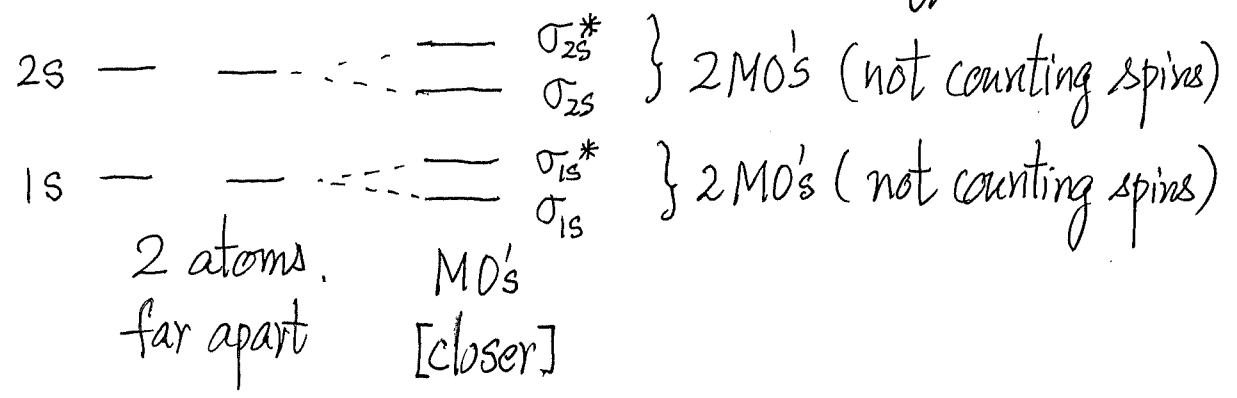 σ2s*
2s σ2s } 2MO's (not counting spins)
σ1s*
1s σ1s } 2MO's (not counting spins)
2 atoms. MO's
far apart [closer]